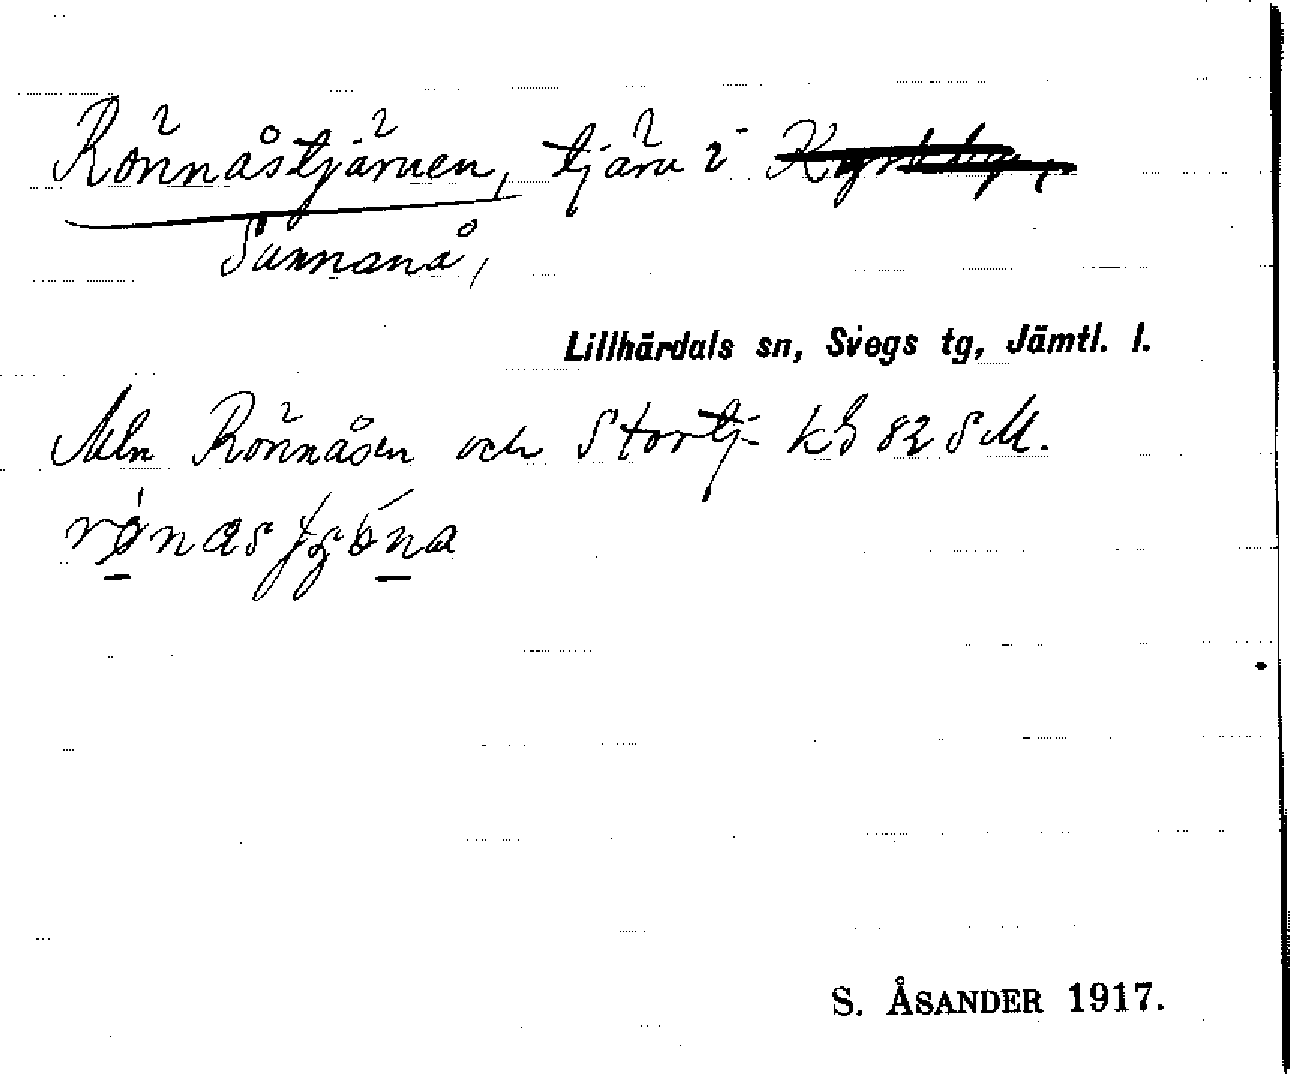 Rönnåstjärnen, tjärn i Kyrkby,
Sunnanå,
Lillhärdals sn, Svegs tg, Jämtl. l.
Mln Rönnåsen och Stortj- kB 82 SM.
S. ÅSANDER 1917.